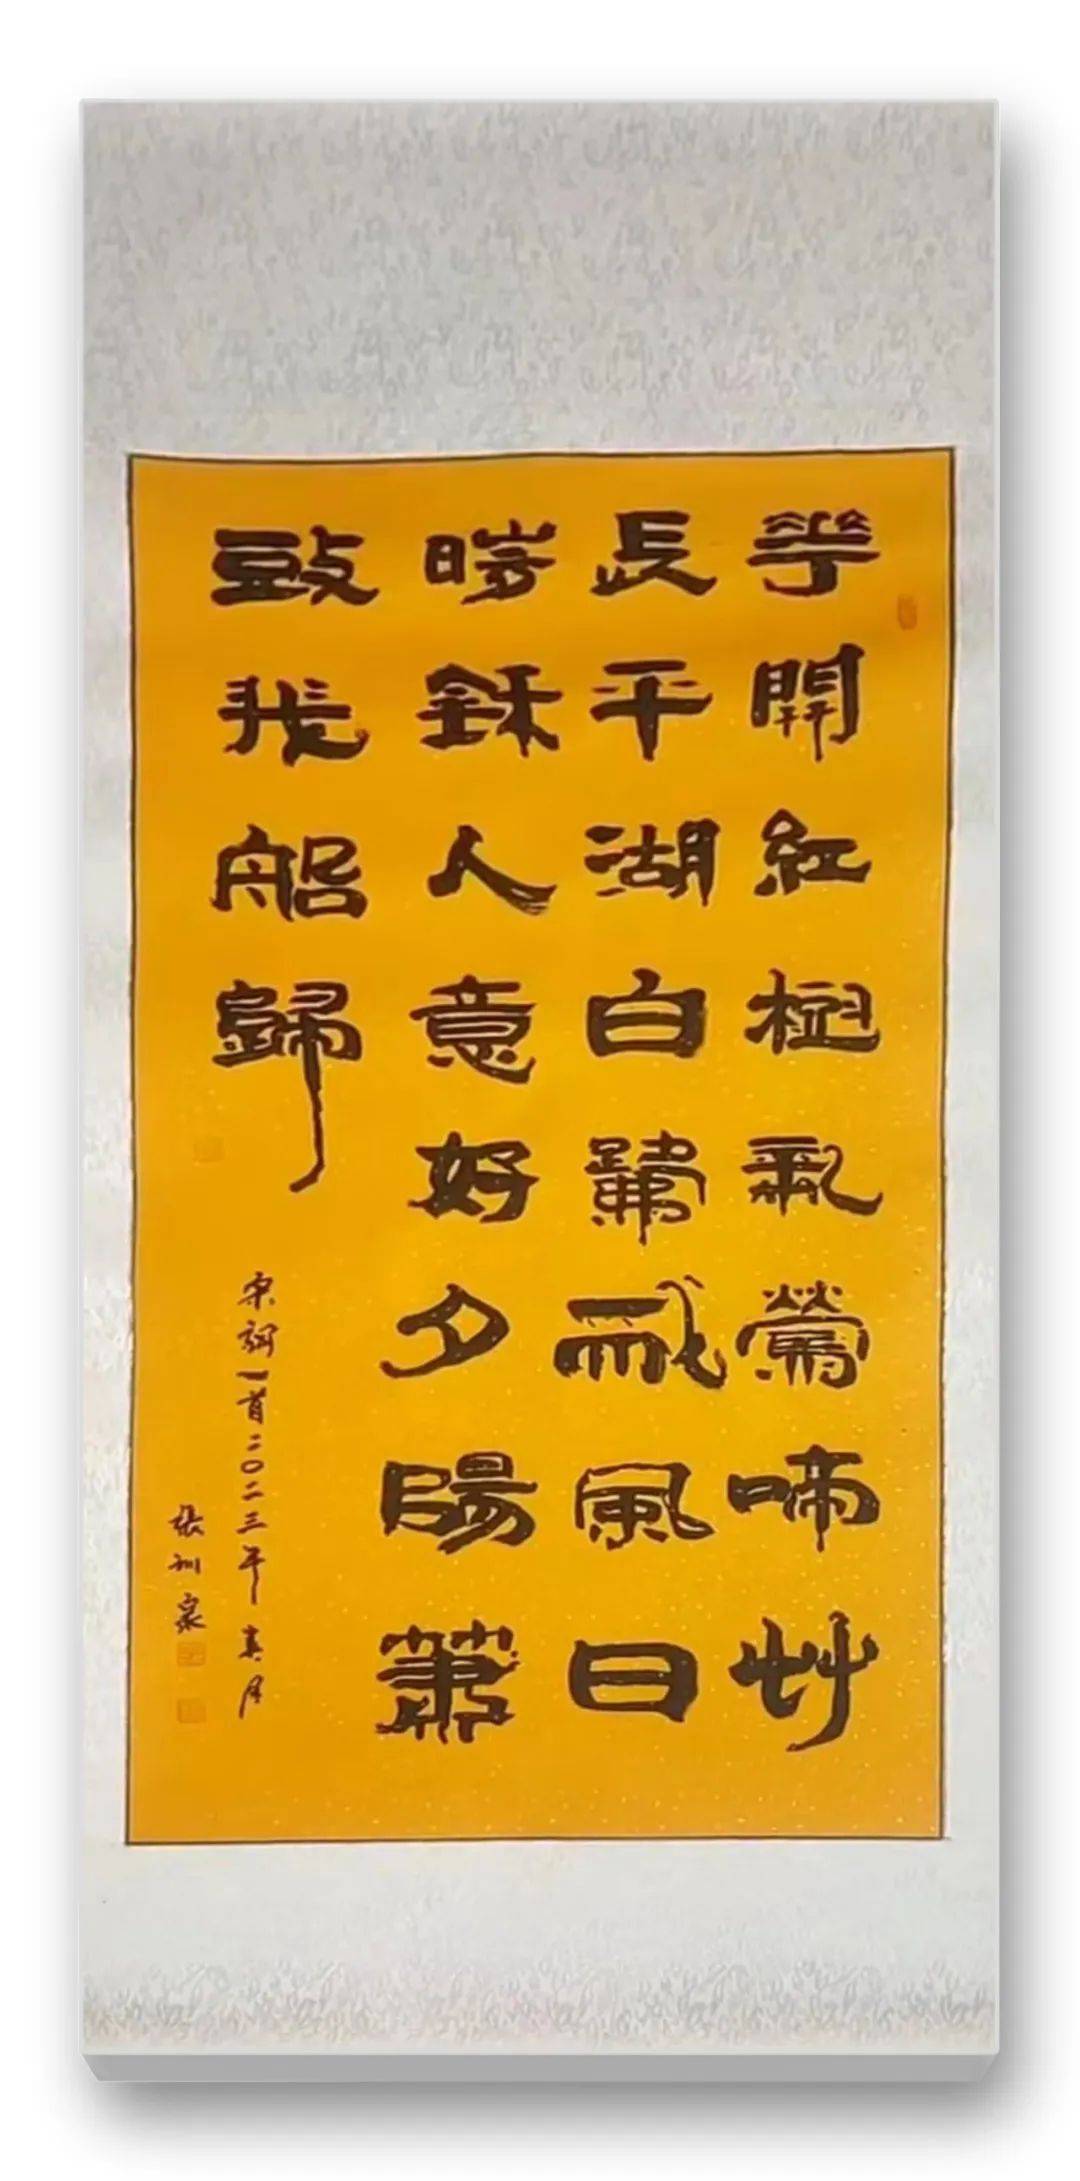 華開紅樹亂鶯啼艸
長平湖白鷺飛風日
晴龢人意好夕陽簫
鼓幾船歸
宋詞一首二〇二三年春月
張訓泉